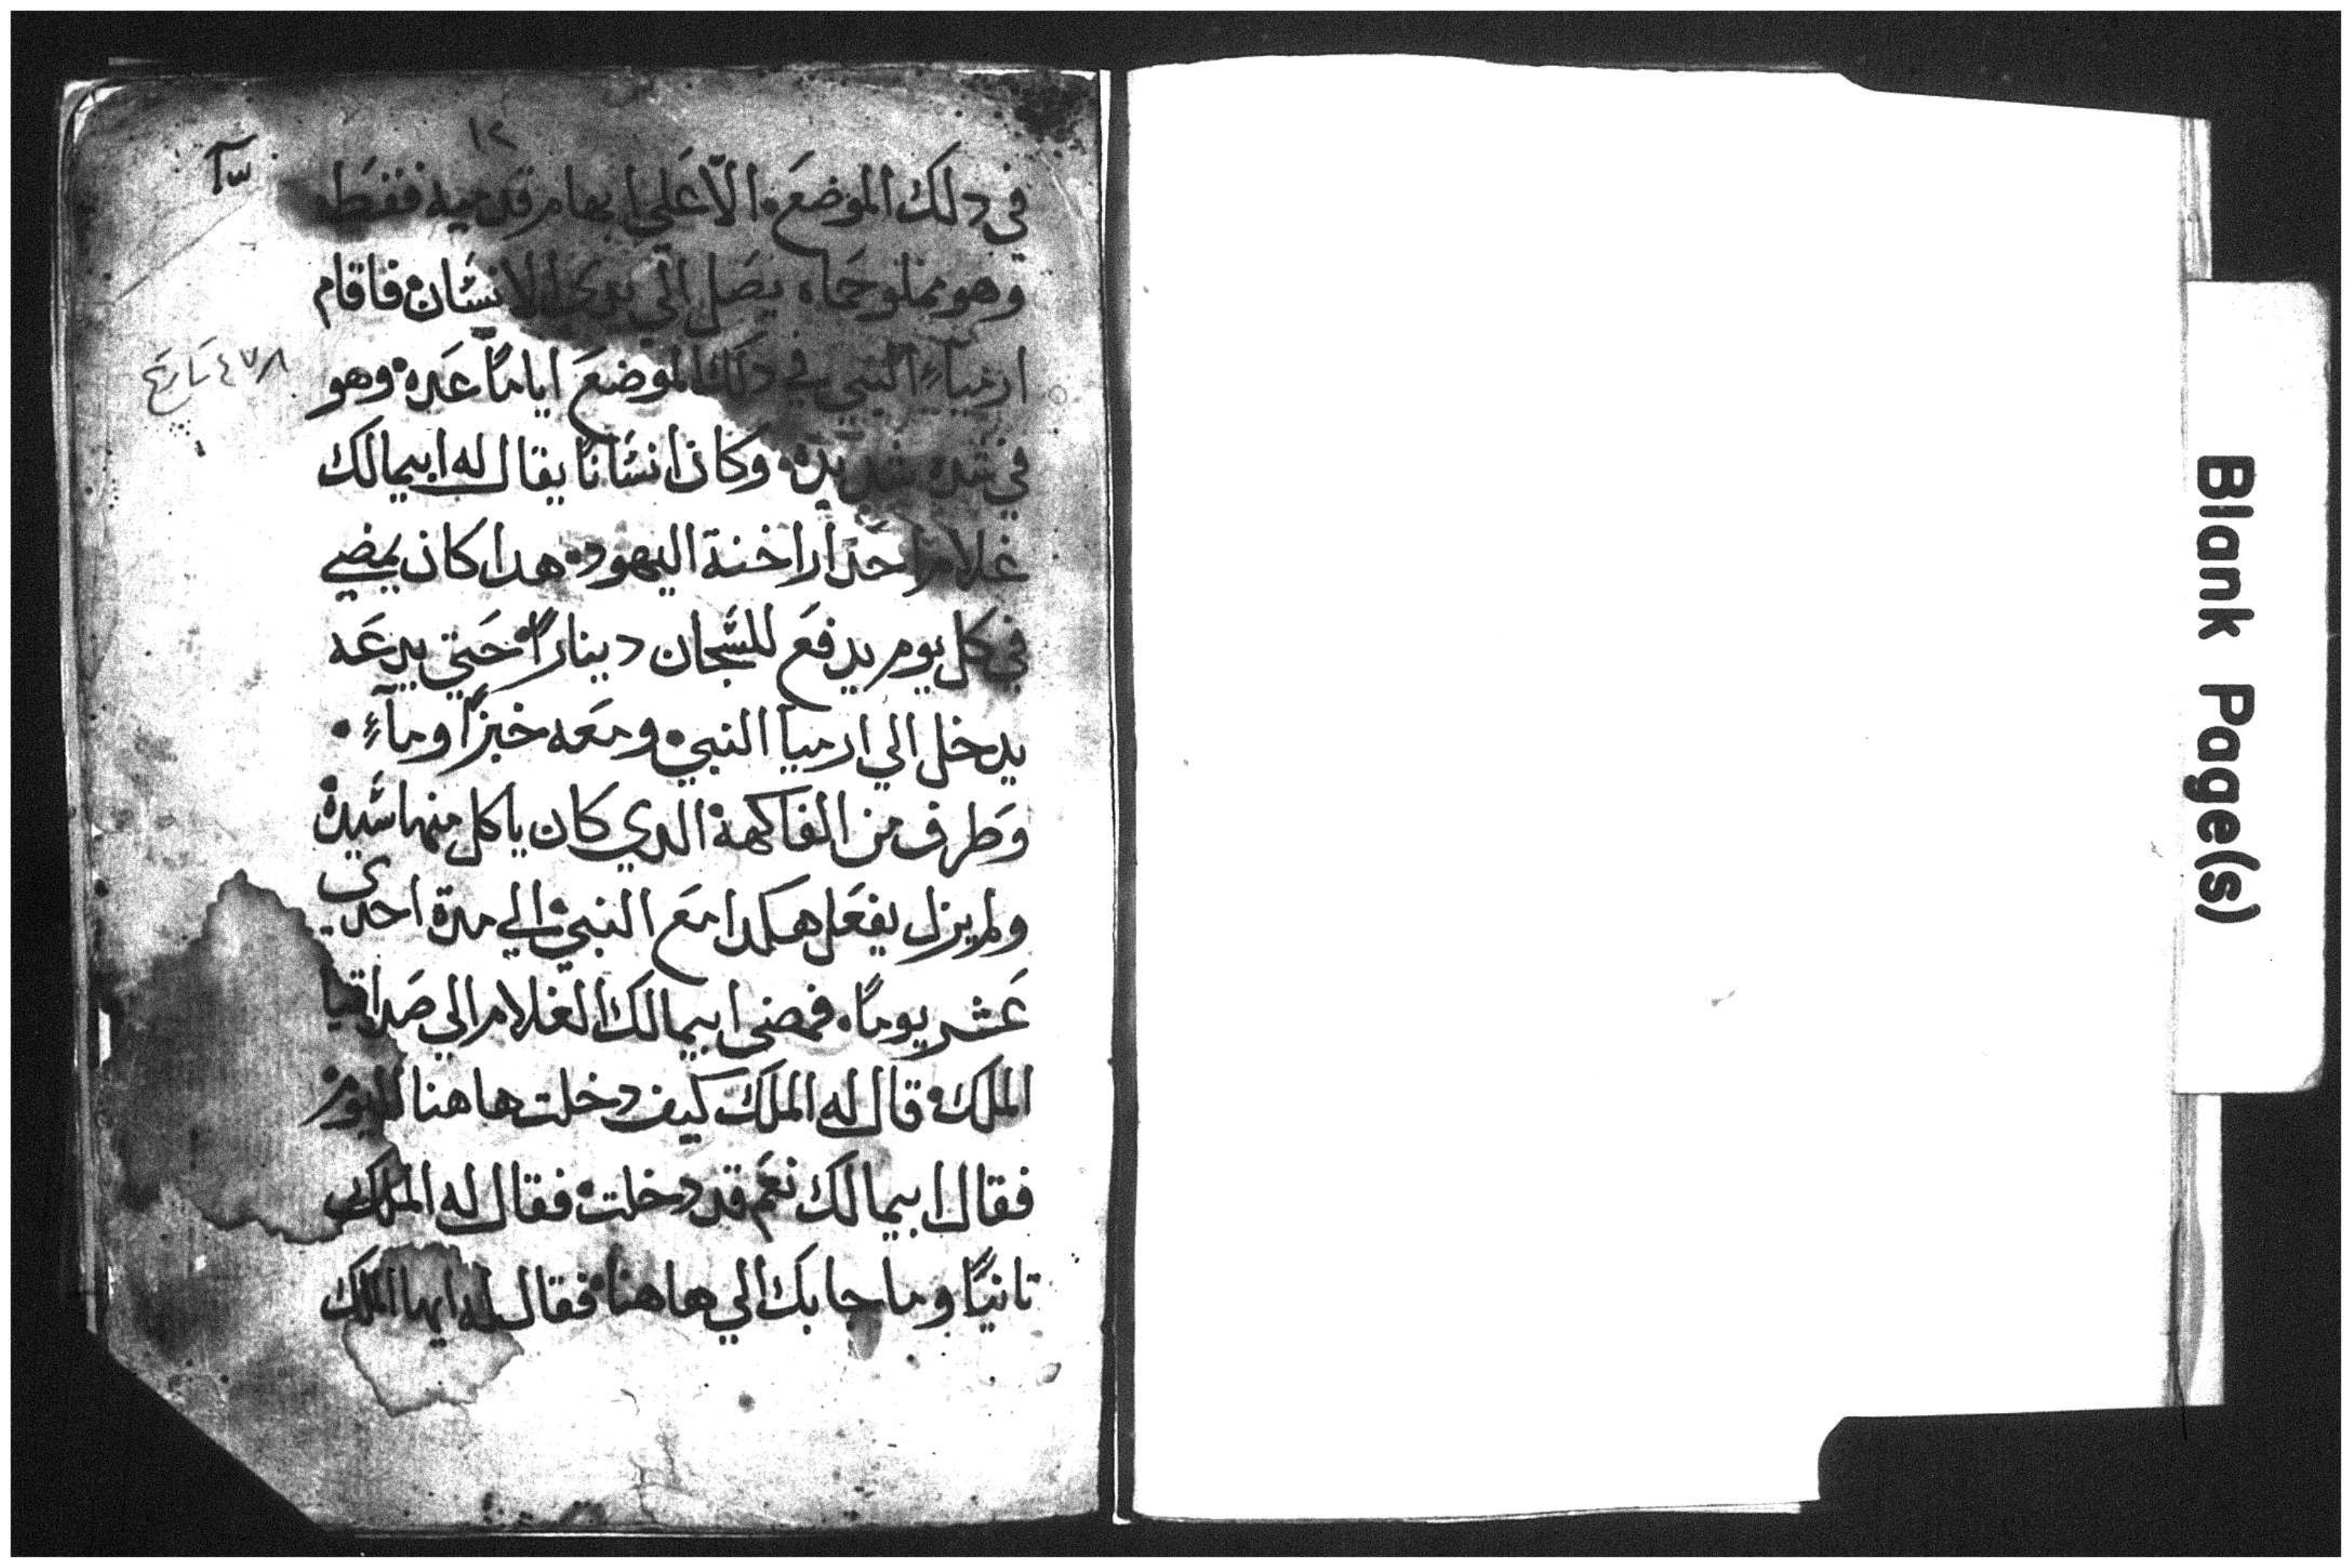 ١٢
في دلك الموضع والآعلي ابهام قدميه فقط
وهو مملو حماه يصل الي الانسان فاقام
ارمياء النبي في دلك الموضع اياماً عده وهو
في شده شديدة وكان انسانا يقال له ابيمالك
غلام احد اراخنة اليهود هدا كان يمضي
في كل يوم يدفع للسجان ديناراً حتي يدعه
يدخل الي ارميا النبي ومعه خبزاً وماءٍ
وطرف من الفاكهة الدي كان ياكل منها سيدة
ولم يزل يفعل هكدا مع النبي الي مدة احدي
عشر يوماً فمضي ابيمالك الغلام الي صداقيا
الملك قال له الملك كيف دخلت هاهنا اليوم
فقال ابيمالك نعم قد دخلت فقال له الملك
تانيًا وما جا بك الي هاهنا فقال له ايها الملك
٤٧٨ تاريخ
Blank Page(s)